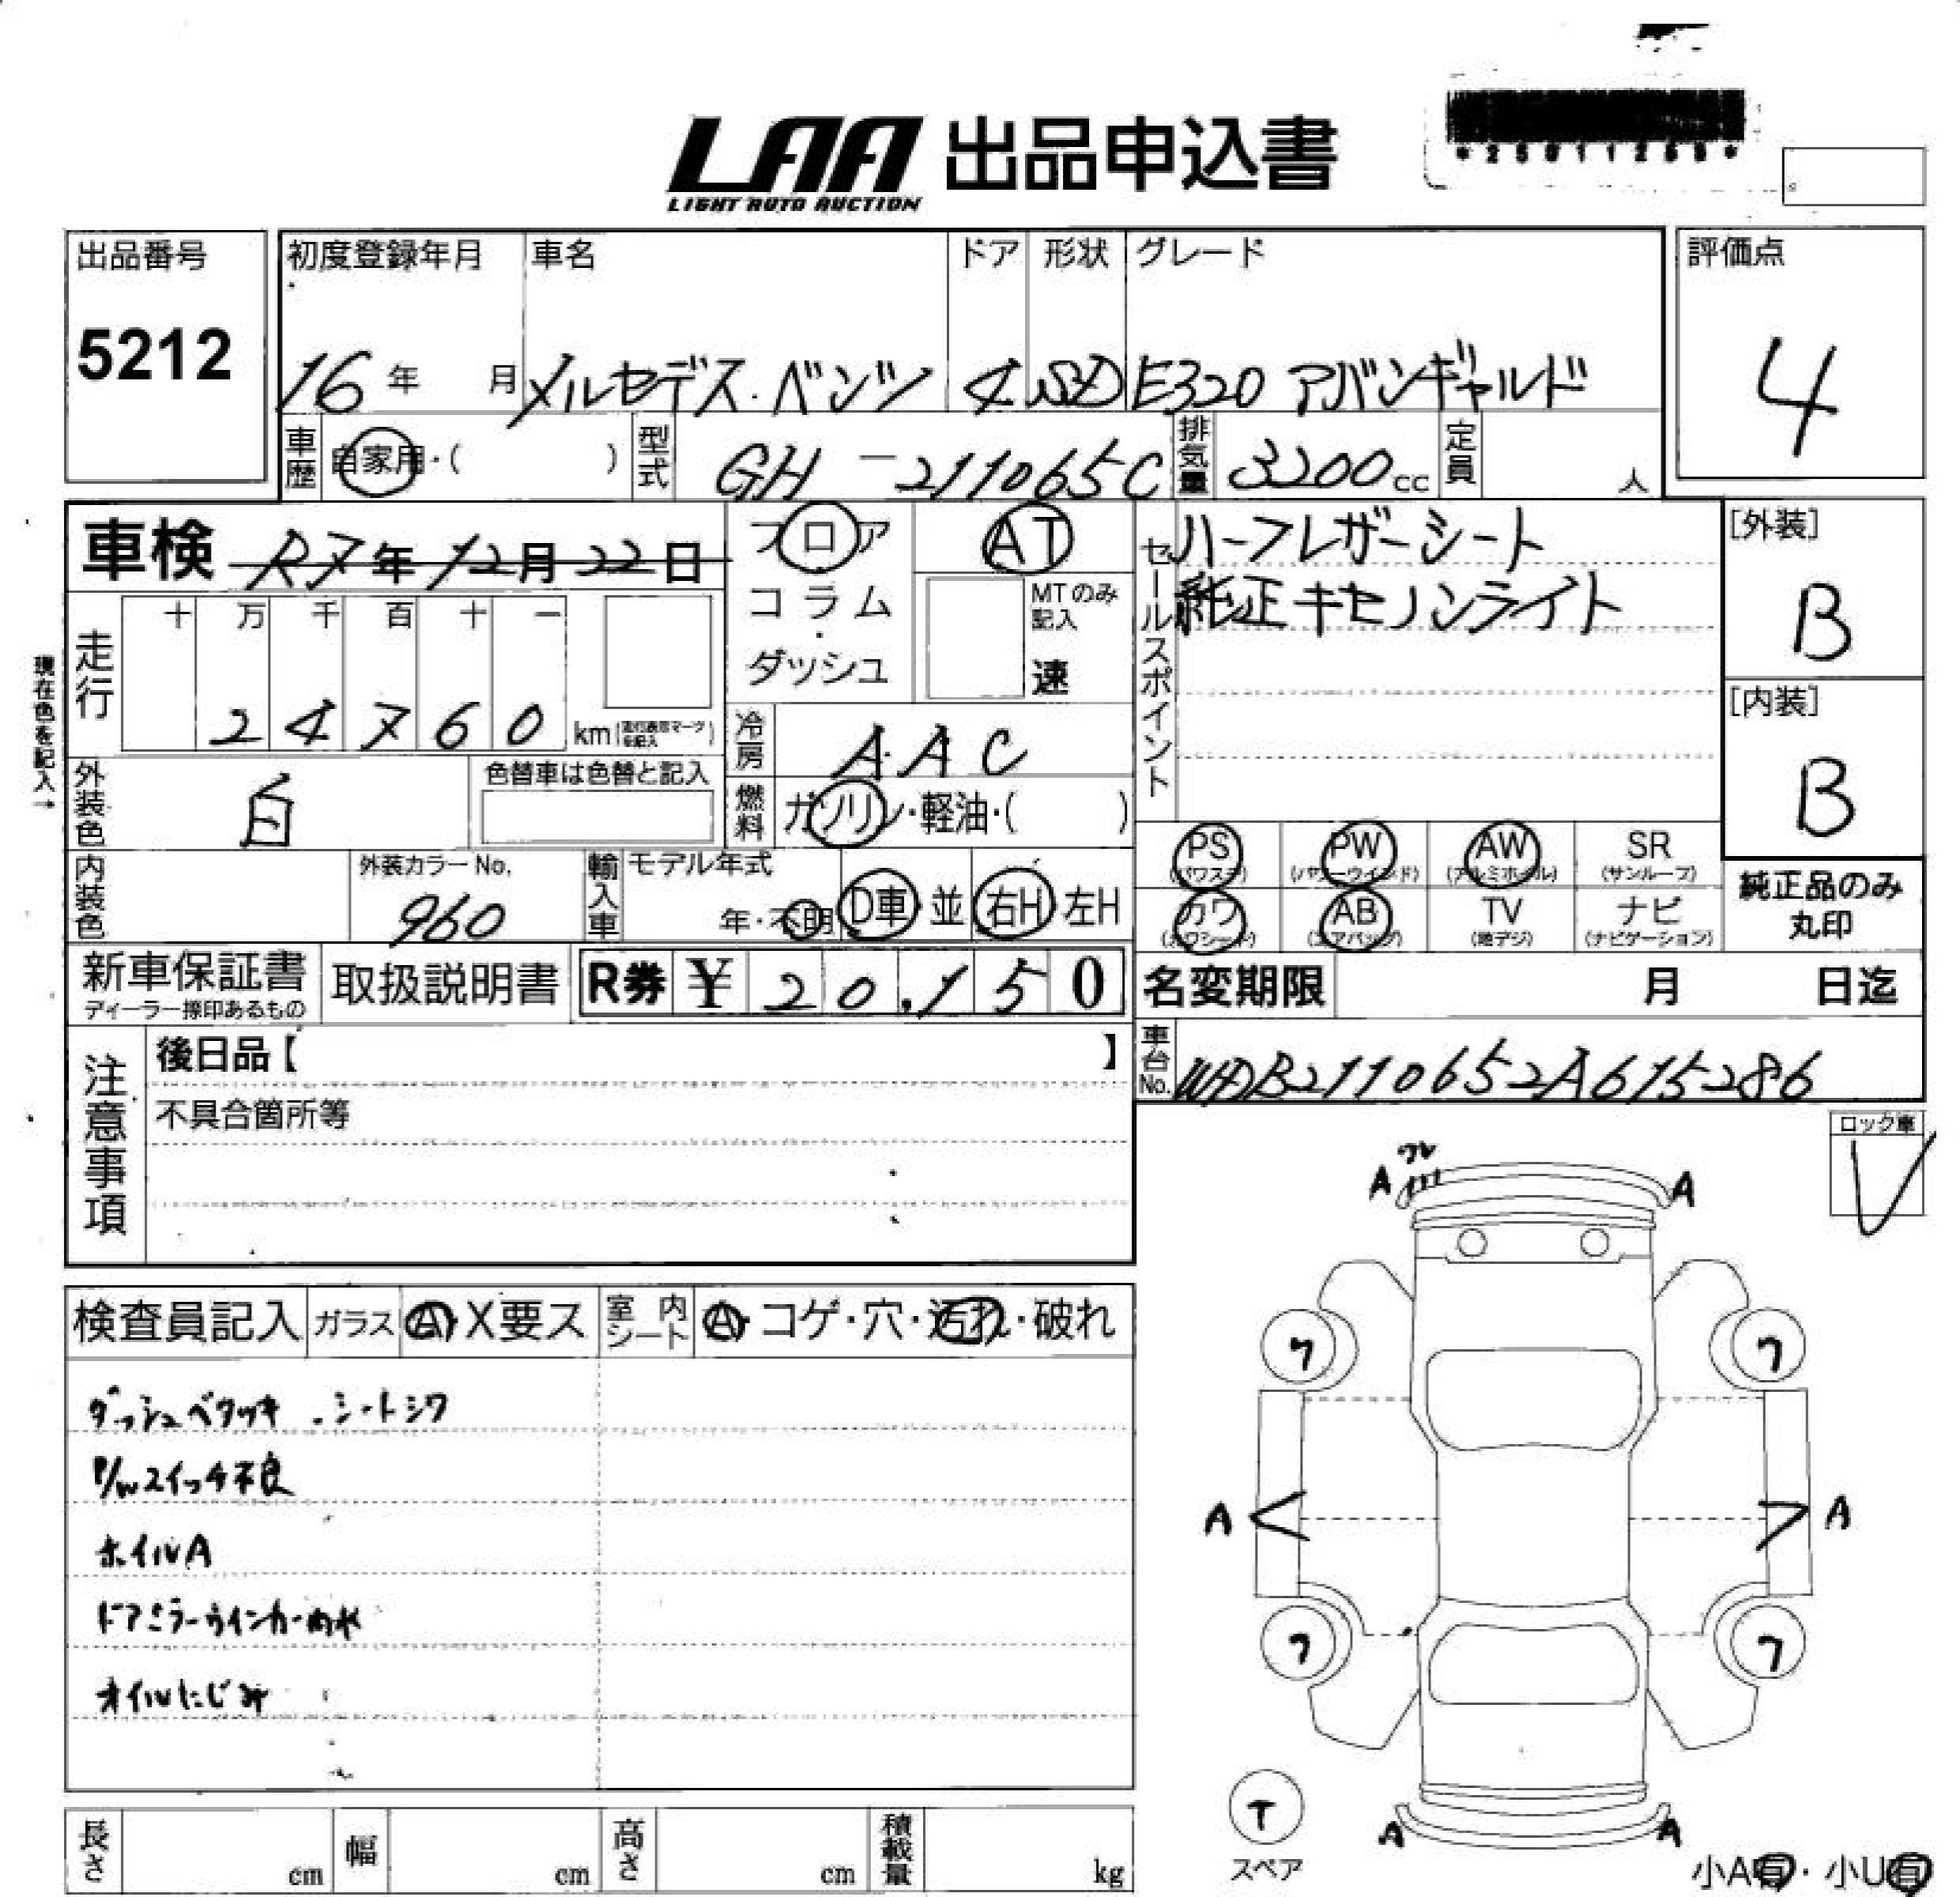 LAA 出品申込書
LIGHT AUTO AUCTION
出品番号
5212
初度登録年月 車名 ドア 形状 グレード
16年 月 メルセデス・ベンツ 4 SD E320 アバンギャルド
評価点
4
車歴 自家用・( ) 型式 GH-211065C 排気量 3200cc 定員 人
車検 R7年12月22日
フロア
コラム
・
ダッシュ
AT
MTのみ
記入
速
セールスポイント
ハーフレザーシート
純正キセノンライト
[外装]
B
[内装]
B
現在色を記入→
走行 十 万 千 百 十 一
2 4 7 6 0 km
冷房 AAC
外装色 白 色替車は色替と記入
燃料 ガソリン・軽油・( )
内装色 外装カラーNo. 960
輸入車 モデル年式 年・不明 D車・並 右H・左H
PS (パワステ) PW (パワーウインド) AW (アルミホイル) SR (サンルーフ)
カワ (カワシート) AB (エアバッグ) TV (地デジ) ナビ (ナビゲーション)
純正品のみ
丸印
新車保証書 取扱説明書 R券 ¥ 20,150
ディーラー捺印あるもの
名変期限 月 日迄
車台No. WDB2110652A615286
注意事項
後日品【 】
不具合箇所等
ロック車
検査員記入 ガラス A・X要ス 室内シート A・コゲ・穴・汚れ・破れ
ダッシュベタツキ・シートシワ
P/Wスイッチ不良
ホイルA
ドアミラーウインカーワレ
オイルにじみ
ワレ
A A
7 7
A A
7 7
T
スペア
A A
小A有・小U有
長さ cm 幅 cm 高さ cm 積載量 kg